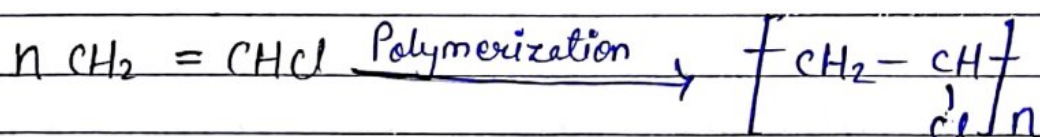 n CH₂ = CHCl Polymerization → [ CH₂ – CH ]n
Cl